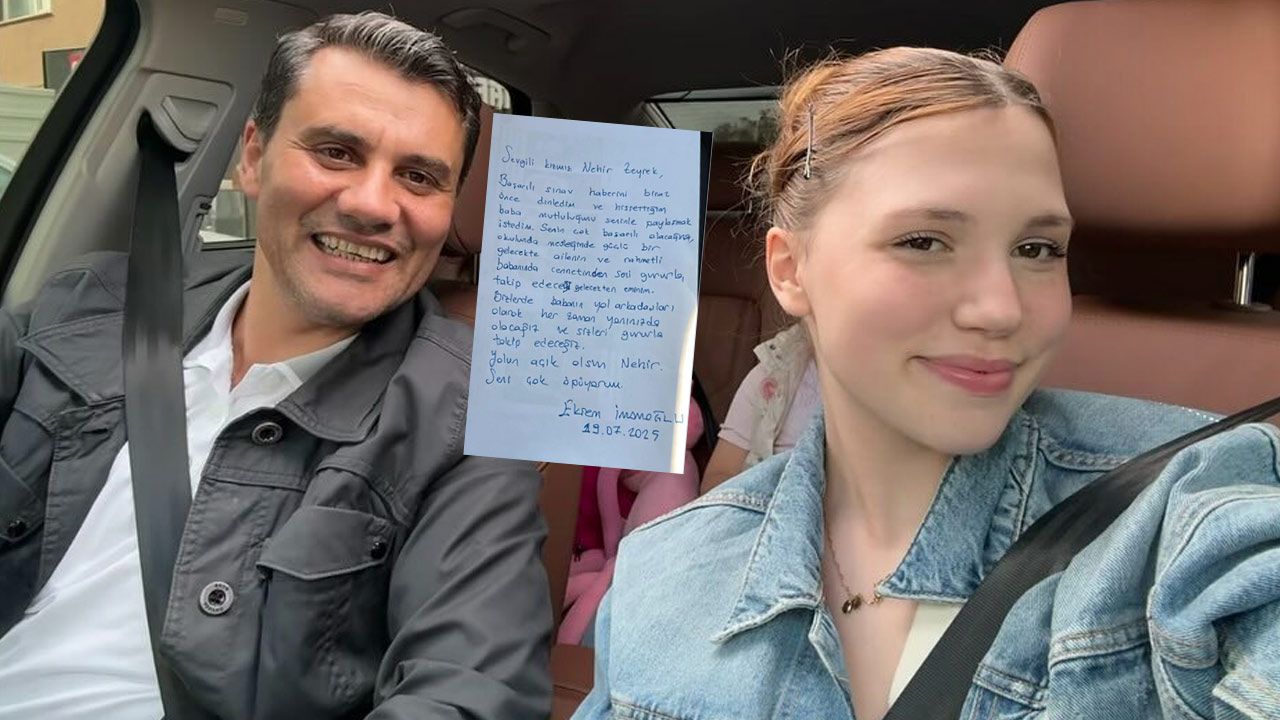 Sevgili kızımız Nehir Zeyrek,
Başarılı sınav haberini biraz
önce dinledim ve hissettiğim
baba mutluluğunu seninle paylaşmak
istedim. Senin çok başarılı olacağına,
okulunda mesleğinde güçlü bir
gelecekte ailenin ve rahmetli
babanında cennetinden seni gururla,
takip edeceği gelecekten eminim.
Bizlerde babanın yol arkadaşları
olarak her zaman yanınızda
olacağız ve sizleri gururla
takip edeceğiz.
Yolun açık olsun Nehir.
Seni çok öpüyorum
Ekrem İmamoğLU
19.07.2025